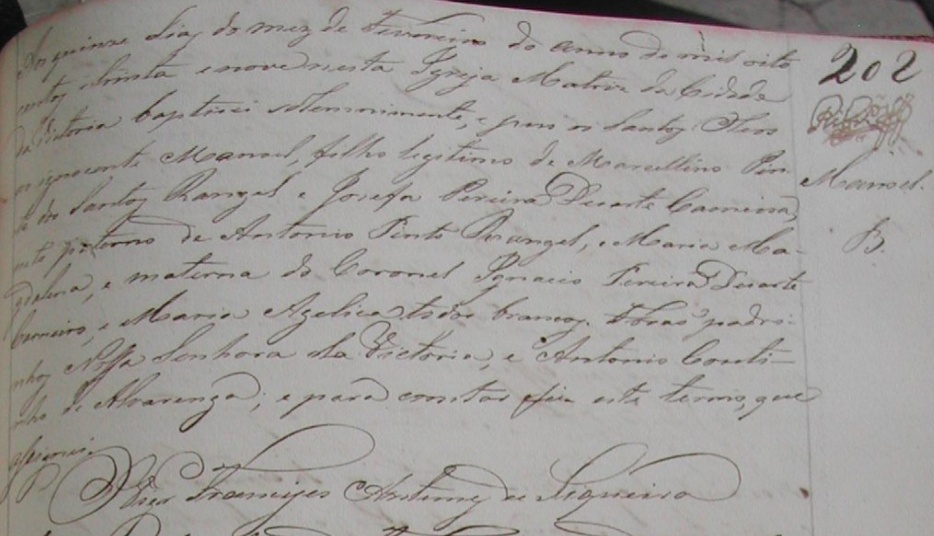 Aos quinze dias do mez de Fevereiro do anno de mil oito
centos trinta e nove nesta Igreja Matriz da Cidade
da Victoria baptizei solemnimente, e puz os Santos Oleos
ao ignocente Manoel, filho legitimo de Marcellino Pin
to dos Santos Rangel e Josefa Pereira Duarte Carneiro,
neto paterno de Antonio Pinto Rangel, e Maria Ma-
gdalena, e materno do Coronel Ignacio Pereira Duarte
Carneiro, e Maria Azelica todos brancos. Forão padri-
nhos Nossa Senhora da Victoria, e Antonio Couti-
nho de Alvarenga; e para constar fiz este termo, que
assignei.
Antunes de Siqueira
202
Manoel.
B.